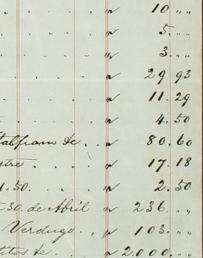 " 10 " "
" 5 " "
" 3 " "
" 29 93
" 11. 29
" 4. 50
de " 80. 60
stre " 17. 18
1.50. " 2. 50
30. de Abril " 236. " "
Verdugo " 103. " "
titos de " 2.000 " "